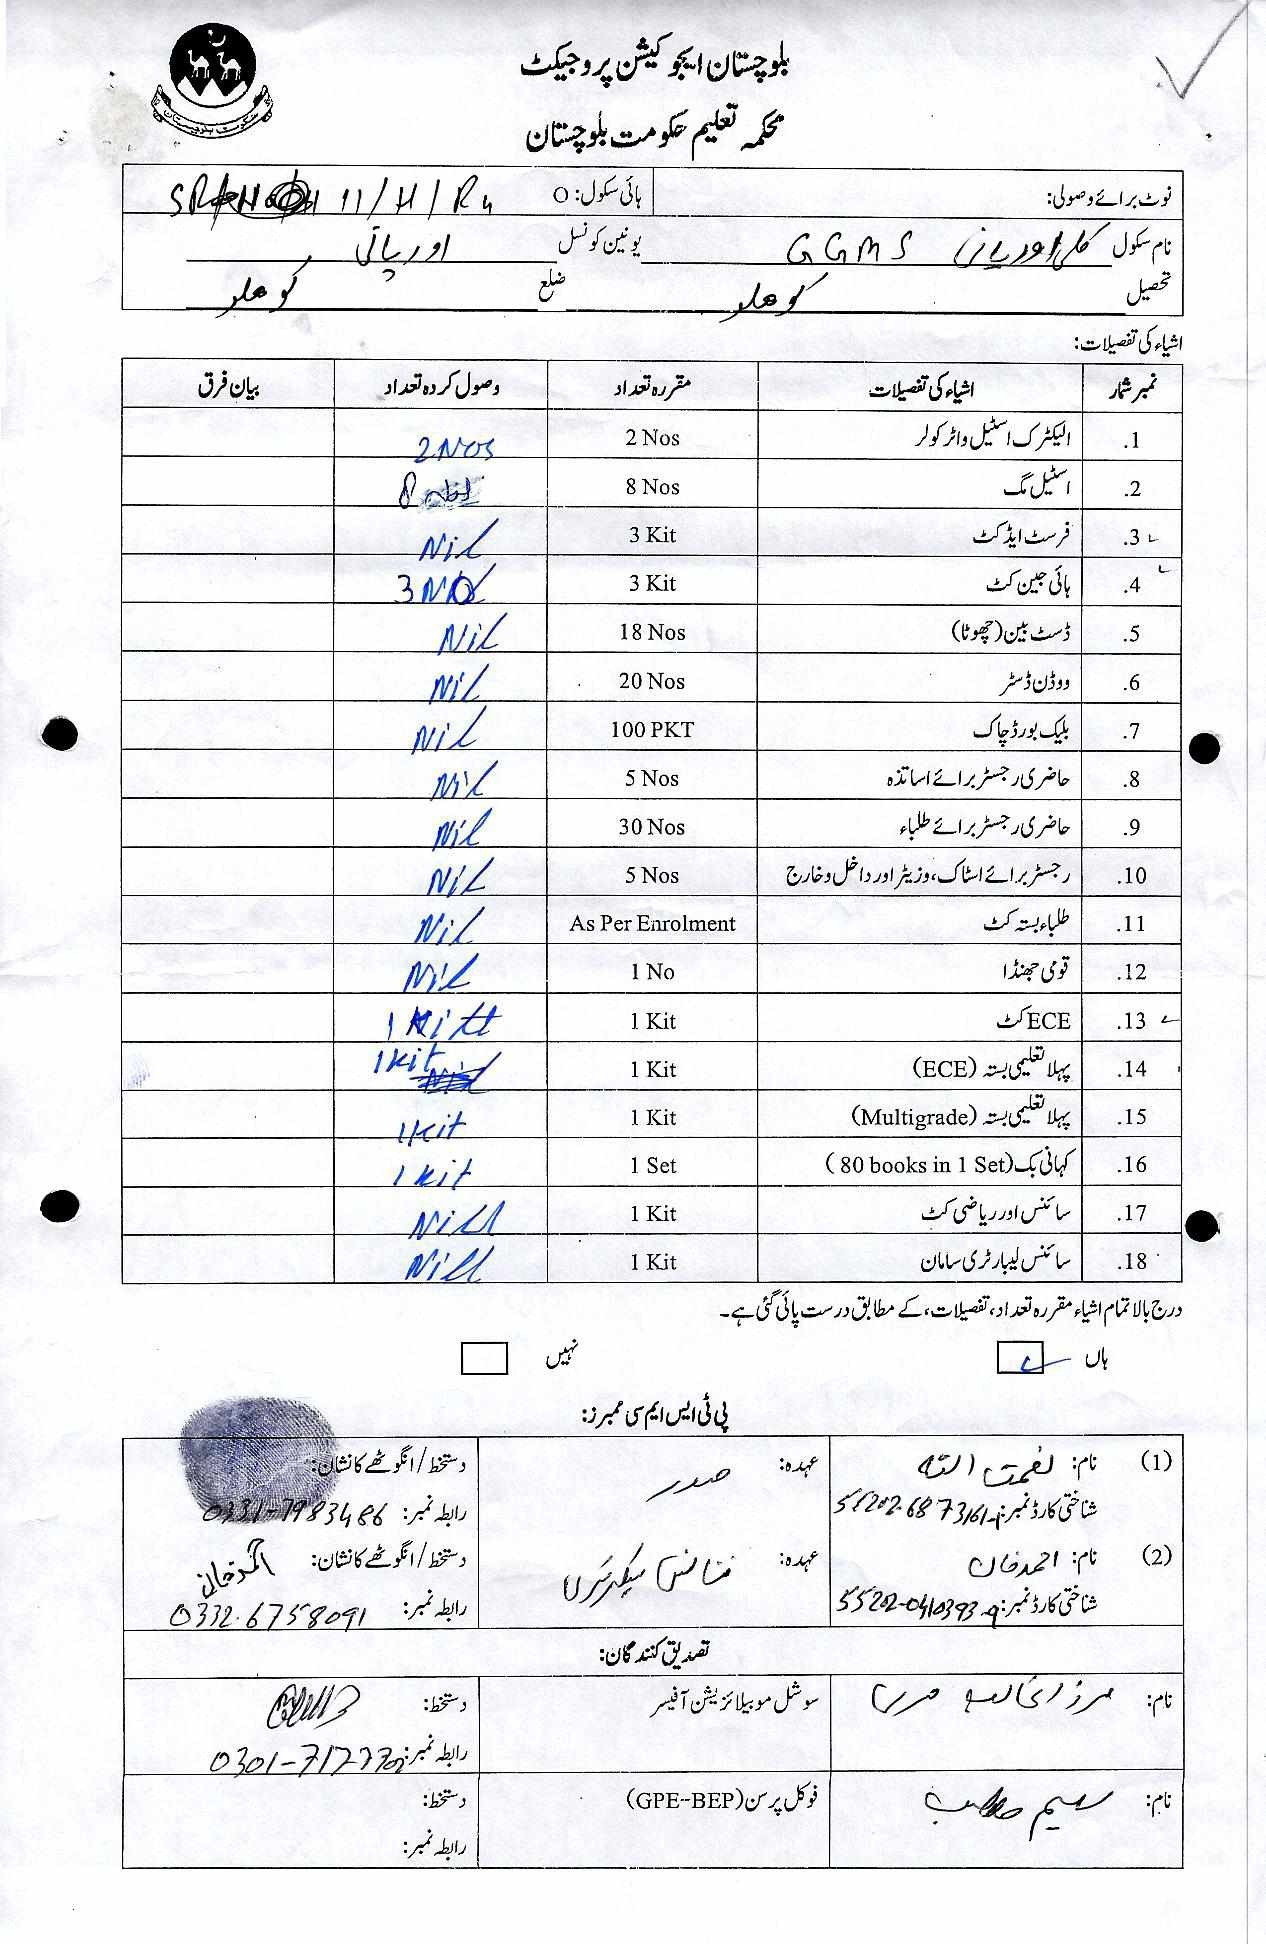 بلوچستان ایجوکیشن پروجیکٹ
محکمہ تعلیم حکومت بلوچستان
حکومت بلوچستان
نوٹ برائے وصولی: ہائی سکول: O 11/H/R4
نام سکول GGMS کلی اوریانی یونین کونسل اوریانی
تحصیل کوھلو ضلع کوھلو
اشیاء کی تفصیلات:
نمبر شمار اشیاء کی تفصیلات مقررہ تعداد وصول کردہ تعداد بیان فرق
1. الیکٹرک اسٹیل واٹر کولر 2 Nos 2 Nos
2. اسٹیل مگ 8 Nos 8
3. فرسٹ ایڈ کٹ 3 Kit Nil
4. ہائی جین کٹ 3 Kit 3 No
5. ڈسٹ بین (چھوٹا) 18 Nos Nil
6. ووڈن ڈسٹر 20 Nos Nil
7. بلیک بورڈ چاک 100 PKT Nil
8. حاضری رجسٹر برائے اساتذہ 5 Nos Nil
9. حاضری رجسٹر برائے طلباء 30 Nos Nil
10. رجسٹر برائے اسٹاک، وزیٹر اور داخل و خارج 5 Nos Nil
11. طلباء بستہ کٹ As Per Enrolment Nil
12. قومی جھنڈا 1 No Nil
13. ECE کٹ 1 Kit 1 Kitt
14. پہلا تعلیمی بستہ (ECE) 1 Kit 1 Kit
15. پہلا تعلیمی بستہ (Multigrade) 1 Kit 1 Kit
16. کہانی بک (80 books in 1 Set) 1 Set 1 Kit
17. سائنس اور ریاضی کٹ 1 Kit Nill
18. سائنس لیبارٹری سامان 1 Kit Nill
درج بالا تمام اشیاء مقررہ تعداد، تفصیلات، کے مطابق درست پائی گئی ہے۔
ہاں نہیں
پی ٹی ایس ایم سی ممبرز:
(1) نام: نعمت اللہ عہدہ: صدر دستخط/انگوٹھے کا نشان:
شناختی کارڈ نمبر: 55202-6873161-1 رابطہ نمبر: 0331-7983486
(2) نام: احمد خان عہدہ: فنانس سیکرٹری دستخط/انگوٹھے کا نشان: احمد خان
شناختی کارڈ نمبر: 55202-0410393-9 رابطہ نمبر: 0332-6758091
تصدیق کنندگان:
نام: سوشل موبیلائزیشن آفیسر دستخط:
رابطہ نمبر:
نام: فوکل پرسن (GPE-BEP) دستخط:
رابطہ نمبر: